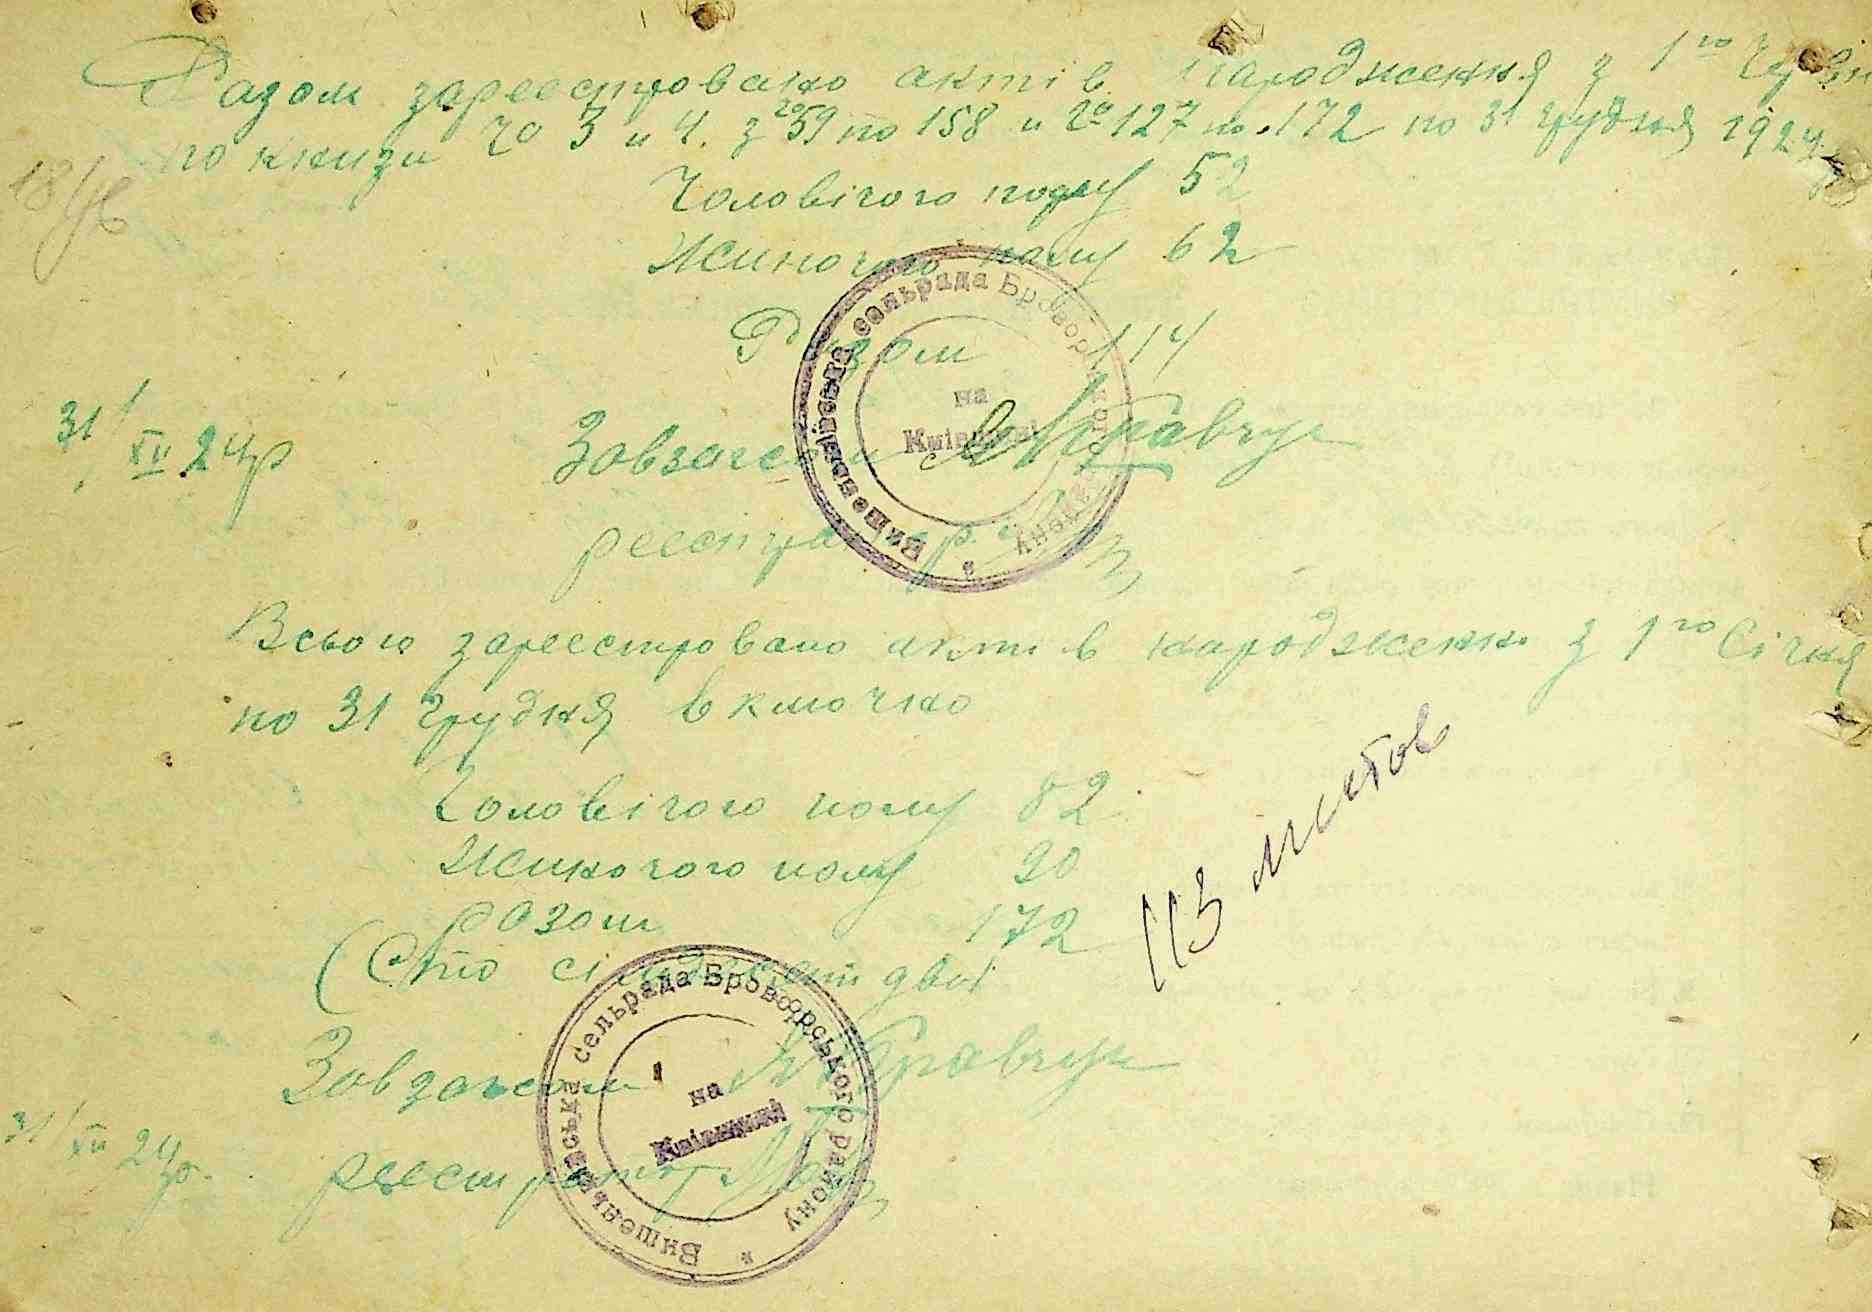 Разом зареестровано актів народження з 1го Червня
по книзи № 3 и 4. з № 59 по 158 и № 127 по 172 по 31 грудня 1924 р
18/VIII
Чоловічого полу 52
Жиночого полу 62
Разом 114
31/XII 24р
Завзагсом Кравчук
реестратор
Вишеньківська сельрада Броворського району
на
Київщині
Всього зареестровано актів народженн з 1го Січня
по 31 грудня включно
Чоловічого полу 82
Жиночого полу 90
разом 172
(Сто сімдесят два)
113 листов
Завзагсом Кравчук
31/XII 24р.
реестратор
Вишеньківська сельрада Броворського району
на
Київщині